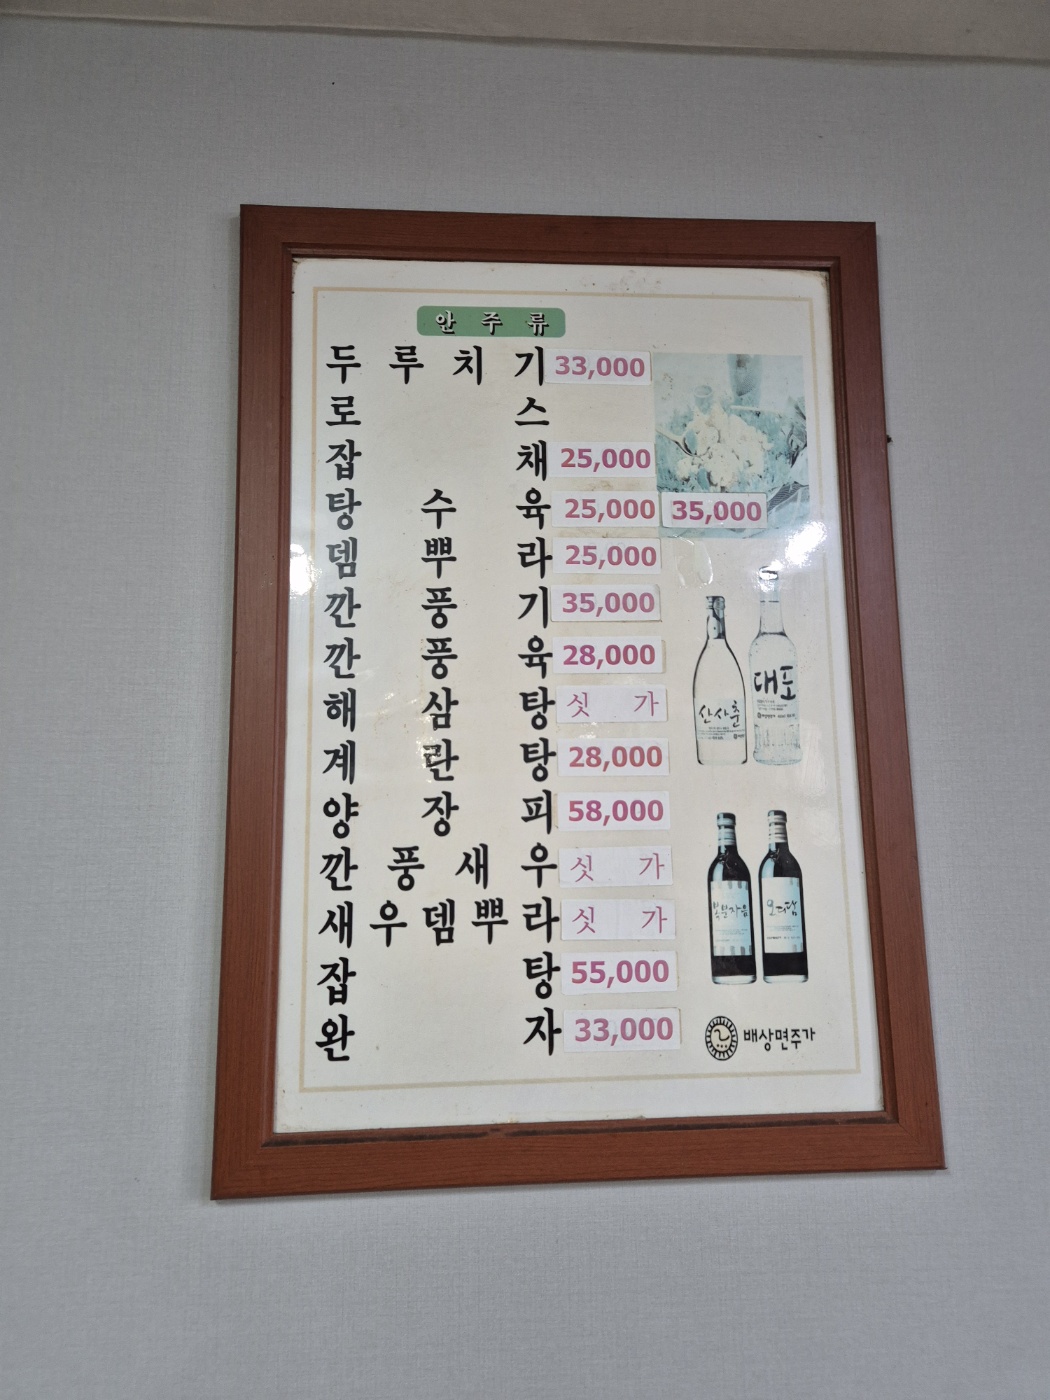 안 주 류
두 루 치 기 33,000
로 스
잡 채 25,000
탕 수 육 25,000 35,000
뎀 뿌 라 25,000
깐 풍 기 35,000
깐 풍 육 28,000
해 삼 탕 싯 가
계 란 탕 28,000
양 장 피 58,000
깐 풍 새 우 싯 가
새 우 뎀 뿌 라 싯 가
잡 탕 55,000
완 자 33,000
산사춘
대포
복분자음
오디담
배상면주가